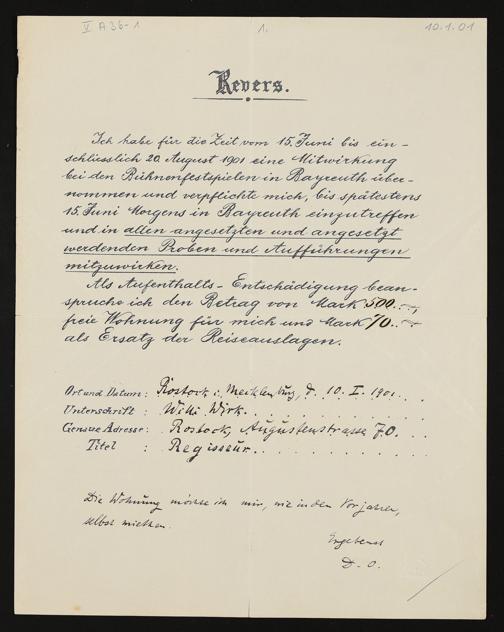 V A 36-1 1. 10.1.01
Revers.
Ich habe für die Zeit vom 15. Juni bis ein-
schliesslich 20. August 1901 eine Mitwirkung
bei den Bühnenfestspielen in Bayreuth über-
nommen und verpflichte mich, bis spätestens
15. Juni Morgens in Bayreuth einzutreffen
und in allen angesetzten und angesetzt
werdenden Proben und Aufführungen
mitzuwirken.
Als Aufenthalts-Entschädigung bean-
spruche ich den Betrag von Mark 500.—,
freie Wohnung für mich und Mark 70.—
als Ersatz der Reiseauslagen.
Ort und Datum: Rostock i. Mecklenburg, d. 10. I. 1901.
Unterschrift: Willi Wirk.
Genaue Adresse: Rostock, Augustenstrasse 70.
Titel: Regisseur.
Die Wohnung möchte ich mir, wie in den Vorjahren,
selbst miethen.
Ergebenst
D. O.